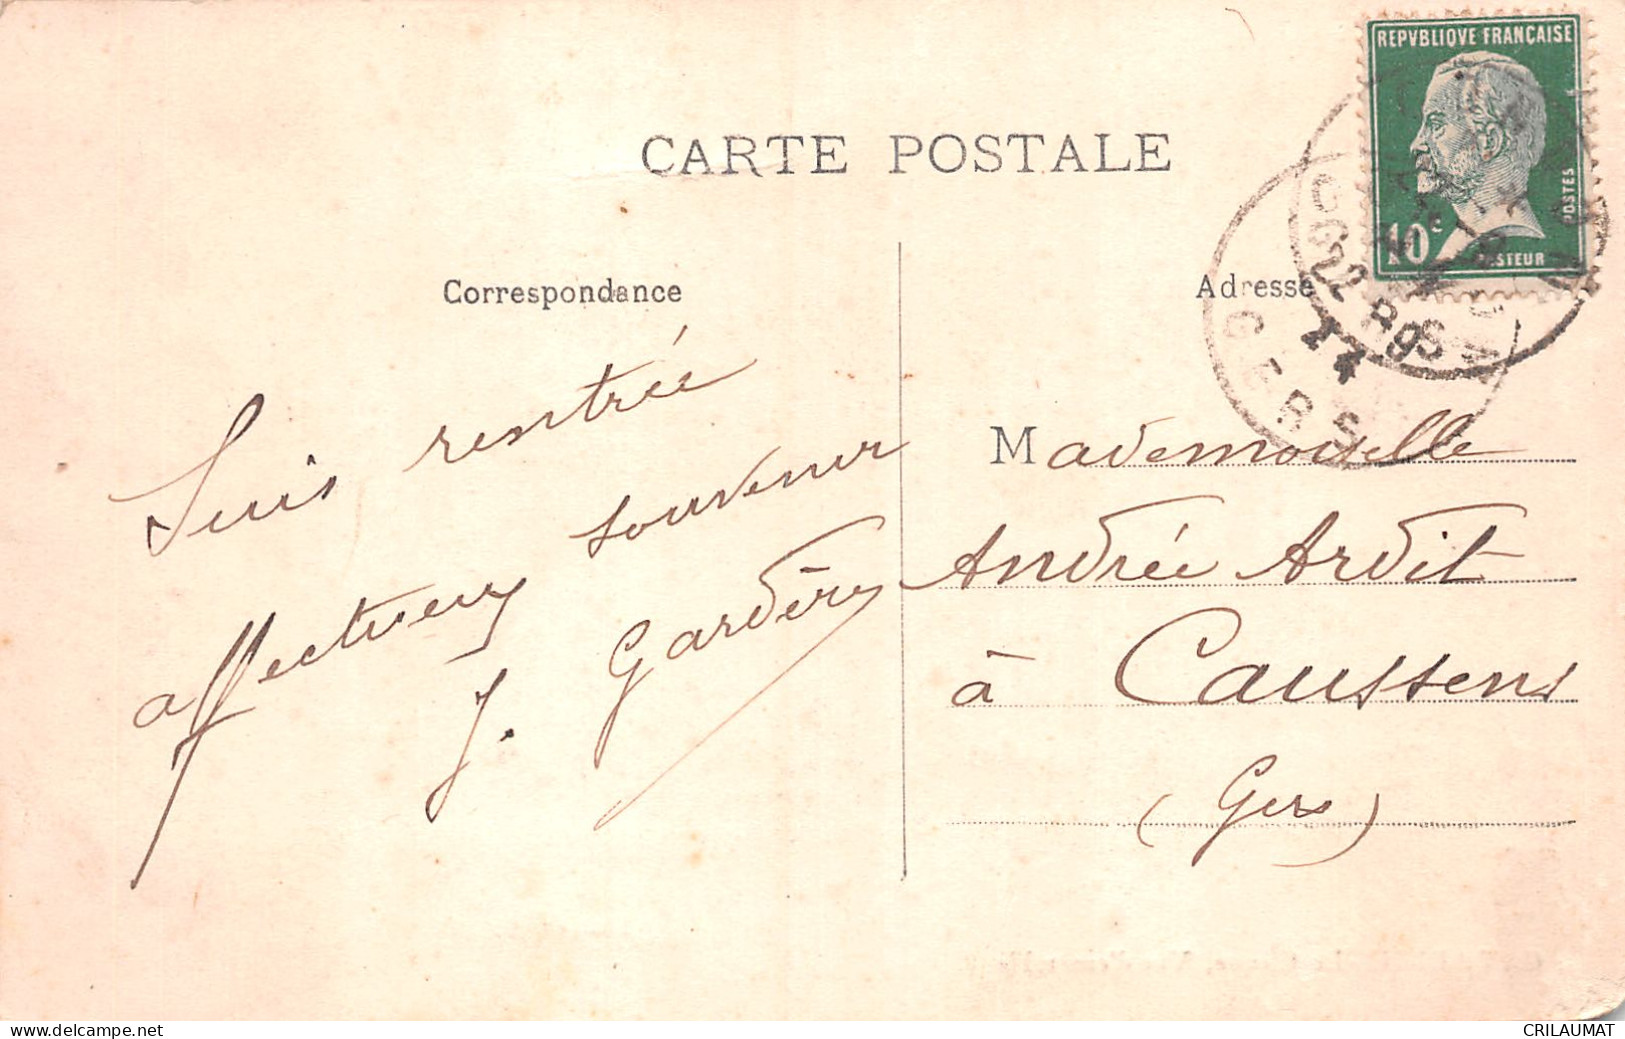 CARTE POSTALE
REPVBLIQVE FRANÇAISE
POSTES
10c
STEUR
Correspondance
Adresse
GERS
Suis rentrée
affectueux souvenir
J. Gardère
Mademoiselle
Andrée Ardit
à Caussens
(Gers)
www.delcampe.net
CRILAUMAT